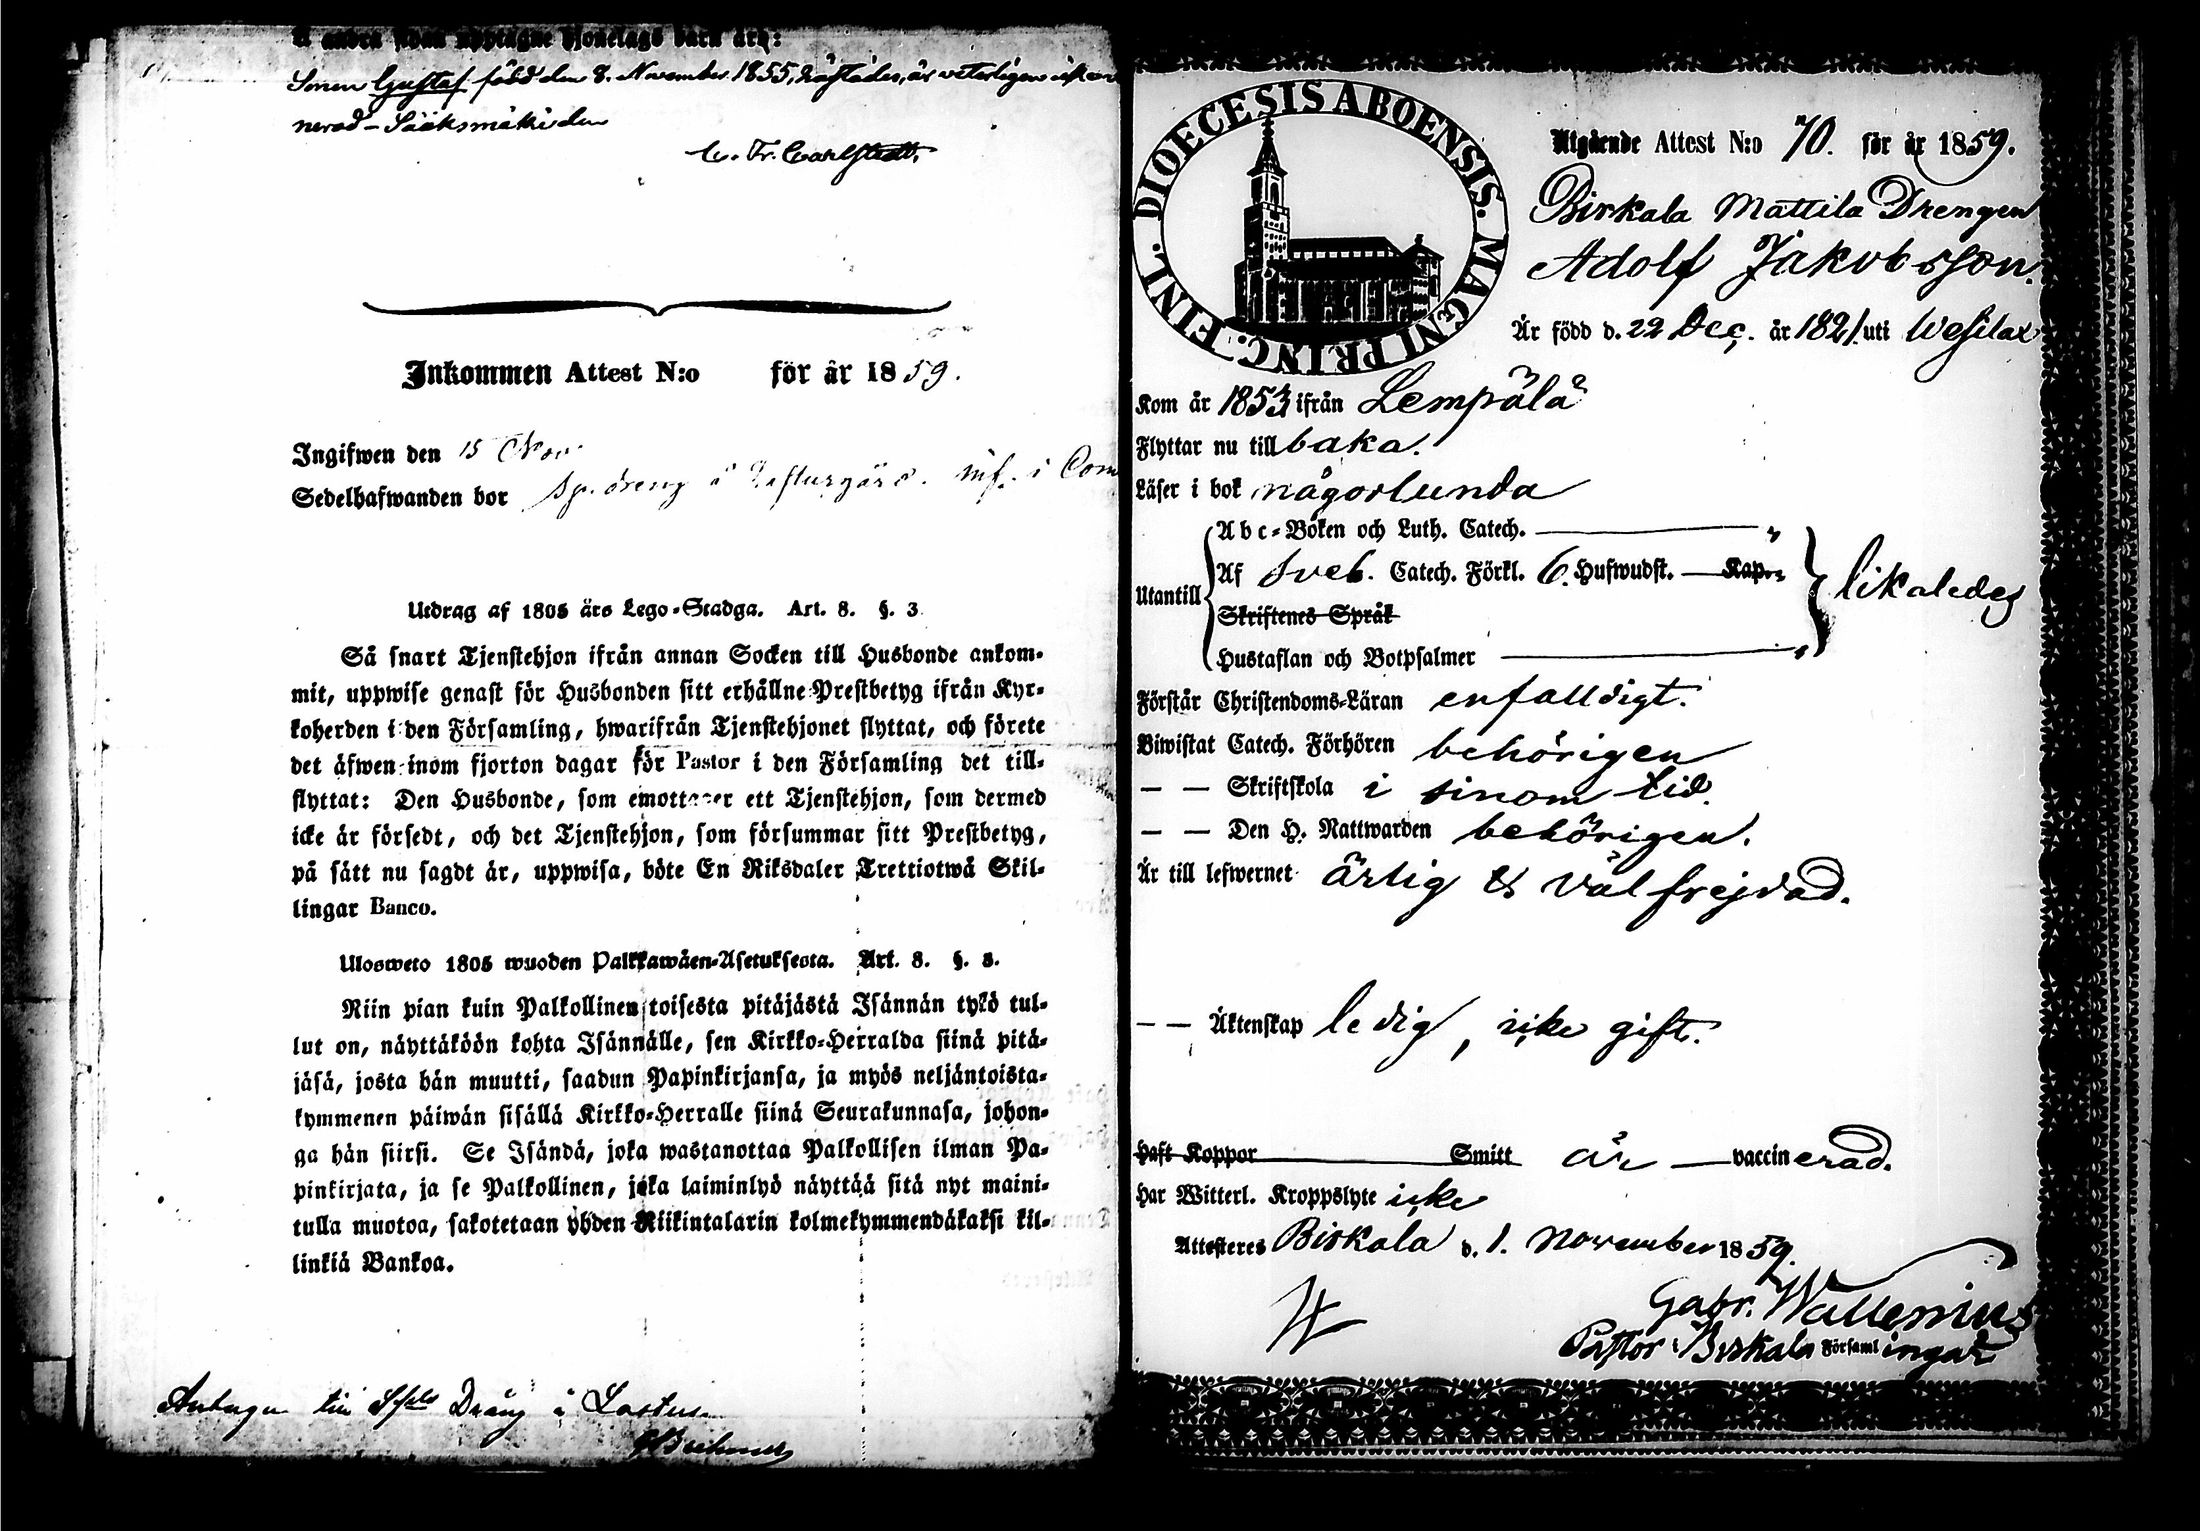 Sonen Gustaf född den 8. November 1855, härstädes, är veterligen ick
nerad – Sääksmäki den
C. Fr. Carlstedt.
Inkommen Attest N:o för år 1859.
Ingifwen den 15 Nov
Sedelhafwanden bor
Utdrag af 1805 års Lego-Stadga. Art. 8. §. 3
Så snart Tjenstehjon ifrån annan Socken till Husbonde ankom-
mit, uppwise genast för Husbonden sitt erhållne Prestbetyg ifrån Kyr-
koherden i den Församling, hwarifrån Tjenstehjonet flyttat, och förete
det äfwen inom fjorton dagar för Pastor i den Församling det till-
flyttat: Den Husbonde, som emottager ett Tjenstehjon, som dermed
icke är försedt, och det Tjenstehjon, som försummar sitt Prestbetyg,
på sätt nu sagdt är, uppwisa, böte En Riksdaler Trettiotwå Skil-
lingar Banco.
Ulosweto 1805 wuoden Palkkawäen-Asetuksesta. Art. 8. §. 3.
Niin pian kuin Palkollinen toisesta pitäjästä Isännän tykö tul-
lut on, näyttäköön kohta Isännälle, sen Kirkko-Herralda siinä pitä-
jäsä, josta hän muutti, saadun Papinkirjansa, ja myös neljäntoista-
kymmenen päiwän sisällä Kirkko-Herralle siinä Seurakunnasa, johon-
ga hän siirsi. Se Isändä, joka wastanottaa Palkollisen ilman Pa-
pinkirjata, ja se Palkollinen, joka laiminlyö näyttää sitä nyt maini-
tulla muotoa, sakotetaan yhden Riikintalarin kolmekymmendäkaksi kil-
linkiä Bankoa.
Antagen till Dräng å
DIOECESIS ABOENSIS. MAGNI PRINC. FINL.
Utgående Attest N:o 70. för år 1859.
Birkala Mattila Drengen
Adolf Jakobsson.
Är född d. 22 Dec. år 1821. uti Wesilax
Kom år 1853 ifrån Lempälä
Flyttar nu till baka.
Läser i bok någorlunda
Utantill
Abc-Boken och Luth. Catech. — "
Af Sveb. Catech. Förkl. 6. Hufwudst. — Kap. "
Skriftenes Språk
Hustaflan och Botpsalmer — "
likaledes
Förstår Christendoms-Läran enfalldigt.
Biwistat Catech. Förhören behörigen
— — Skriftskola i sinom tid.
— — Den H. Nattwarden behörigen.
Är till lefwernet ärlig & välfrejdad.
— — Äktenskap ledig, icke gift.
Haft Koppor Smitt är — vaccinerad.
Har Witterl. Kroppslyte icke
Attesteres Birkala d. 1. November 1859.
Gabr. Wallenius
Pastor i Birkala Församlingar